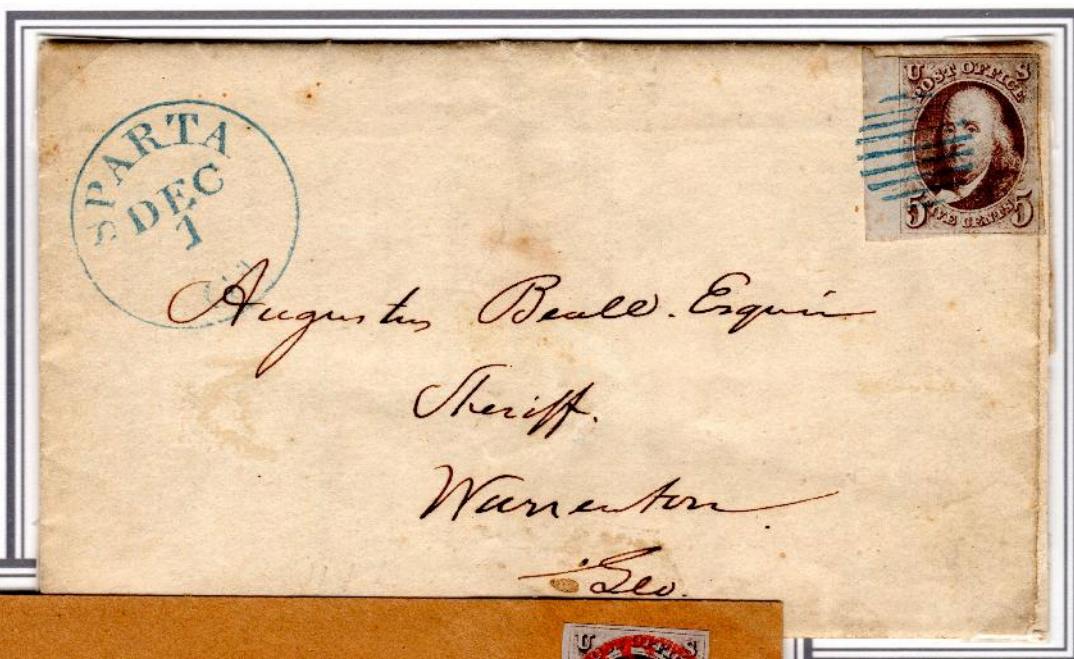 SPARTA
DEC
1
U S
POST OFFICE
5 FIVE CENTS 5
Augustus Beall. Esquire
Sheriff.
Warrenton
Geo.
U S
POST OFFICE